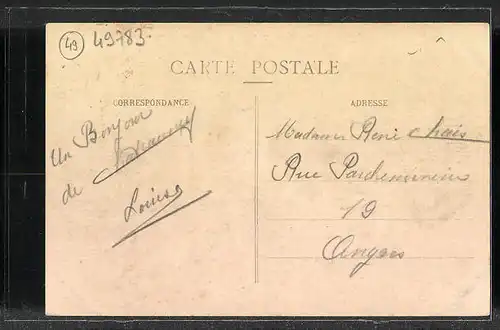 49
49783
CARTE POSTALE
CORRESPONDANCE
ADRESSE
Un Bonjour
de
Louise
Madame René Chais
Rue Parcheminerie
19
Angers